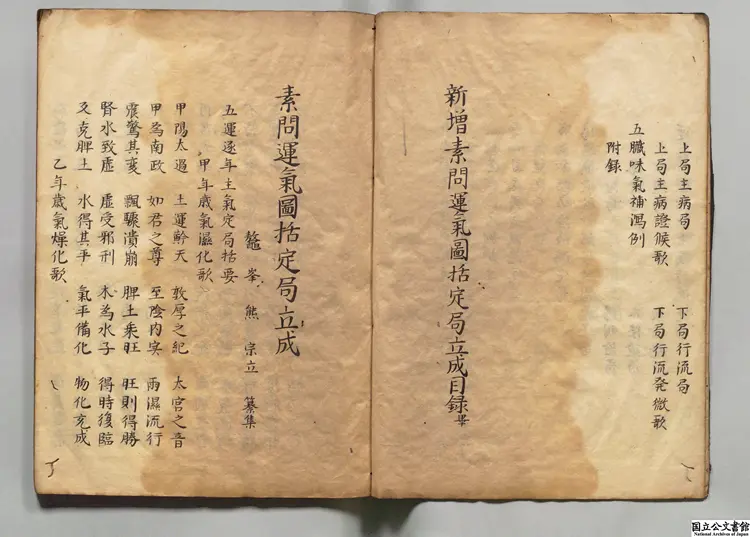 上局主病局　下局行流局
上局主病證候歌　下局行流発微歌
五臓味氣補瀉例
附録
新增素問運氣圖括定局立成目録畢
素問運氣圖括定局立成
鼇峯熊宗立纂集
五運逐年主氣定局括要
甲年歳氣濕化歌
甲陽太過　土運黅天　敦厚之紀　太宮之音
甲為南政　如君之尊　至陰内実　雨濕流行
震驚其変　飄驟潰崩　脾土乘旺　旺則得勝
腎水致虚　虚受邪刑　木為水子　得時復臨
及克脾土　水得其平　氣平備化　物化充成
乙年歳氣燥化歌
国立公文書館
National Archives of Japan